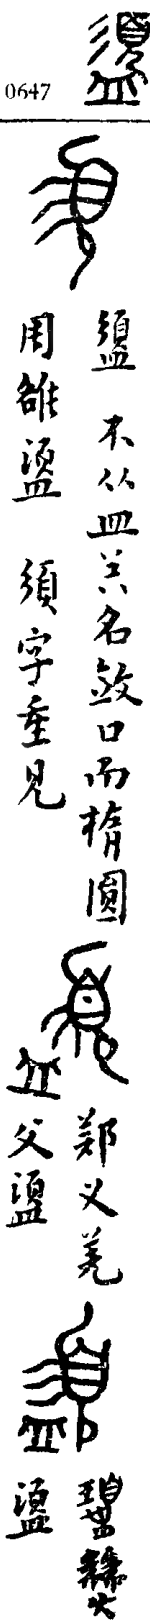 0647 盨
盨 不从皿 器名敛口而楕圓
周雒盨 須字重見
郑义羌
父盨
盨